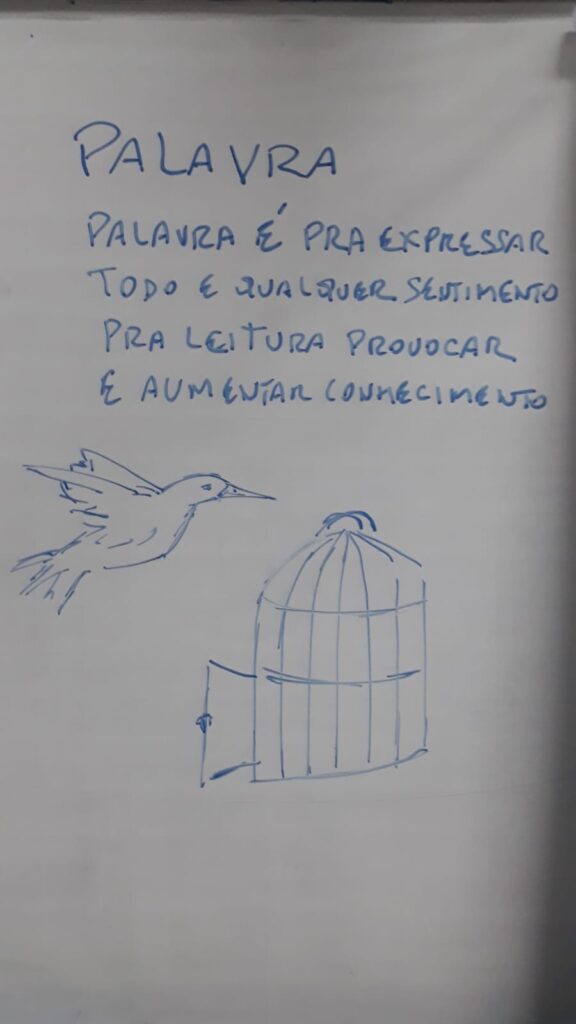 PALAVRA
PALAVRA É PRA EXPRESSAR
TODO E QUALQUER SENTIMENTO
PRA LEITURA PROVOCAR
E AUMENTAR CONHECIMENTO